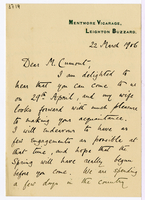 3719
MENTMORE VICARAGE,
LEIGHTON BUZZARD.
22 March 1906
Dear M. Cumont,
I am delighted to
hear that you can come to us
on 29th April, and my wife
looks forward with much pleasure
to making your acquaintance.
I will endeavour to have as
few engagements as possible at
that time, and hope that the
Spring will have really begun
before you come. We are spending
a few days in the country